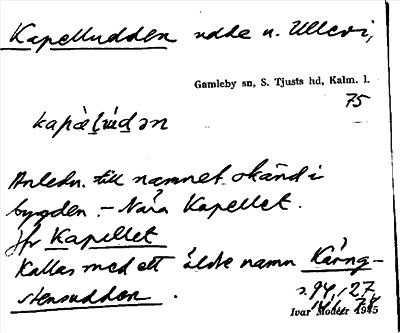 Kapelludden udde n. Ullevi,
Gamleby sn, S. Tjusts hd, Kalm. l.
75
Anledn. till namnet okänd i
bygden. – Nära Kapellet.
Jfr Kapellet
Kallas med ett äldre namn Kärng-
stensudden.
Ivar Modéer 1945